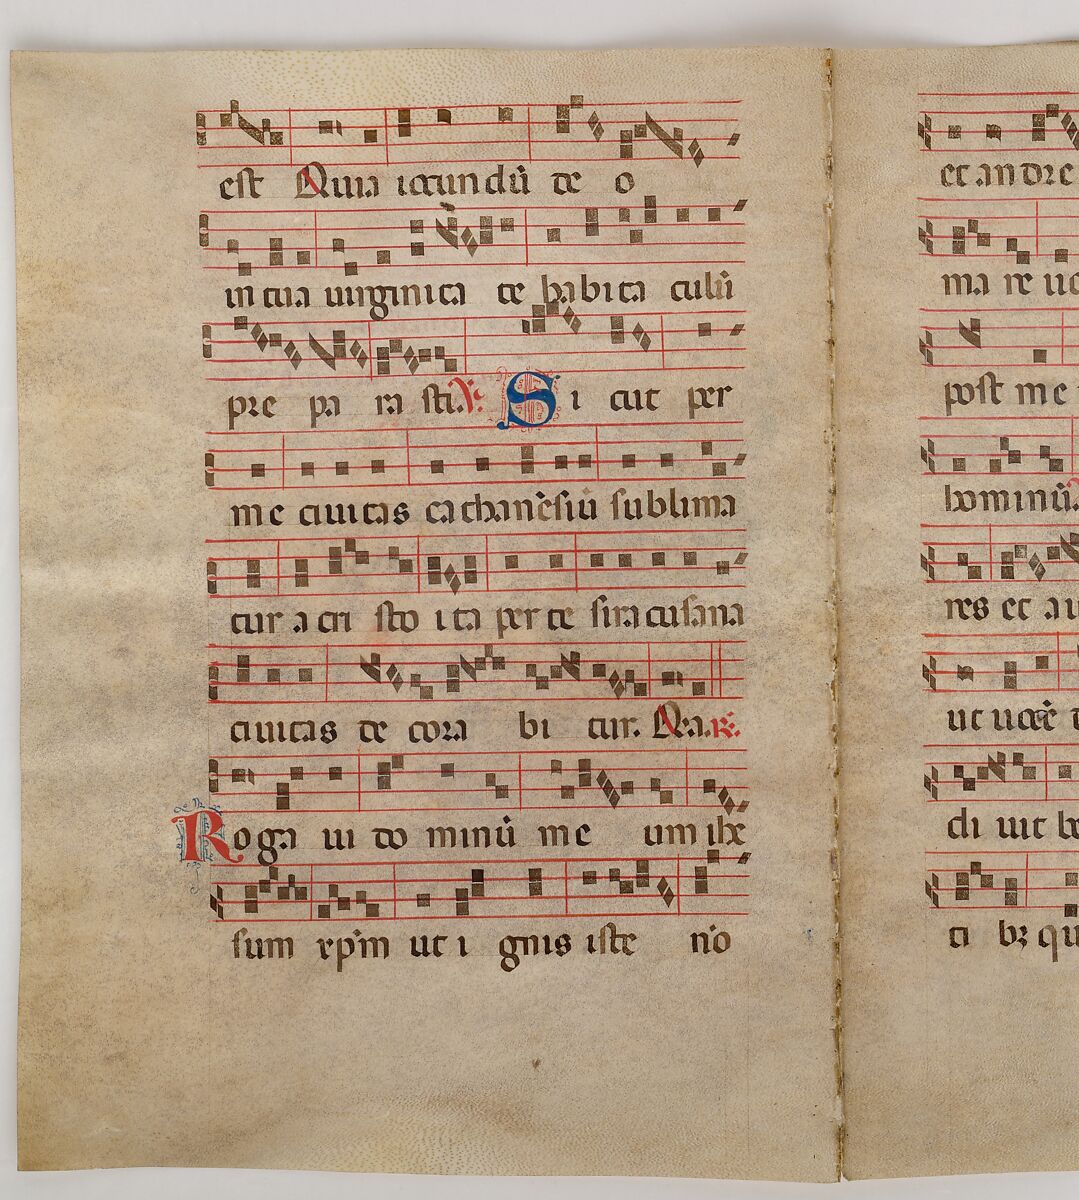 est Quia iocundū de o
in tua uirginita te habita culū
pre pa ra sti. ℣. Si cut per
me ciuitas cathanēsiū sublima
tur a cri sto ita per te siracusana
ciuitas de cora bi tur. Qia. ℟.
Roga ui do minū me um ihe
sum xp̄m ut i gnis iste nō
et an dre
ma re uo
post me
hominū
res et au
ut uocē
di uit
ti bz qu